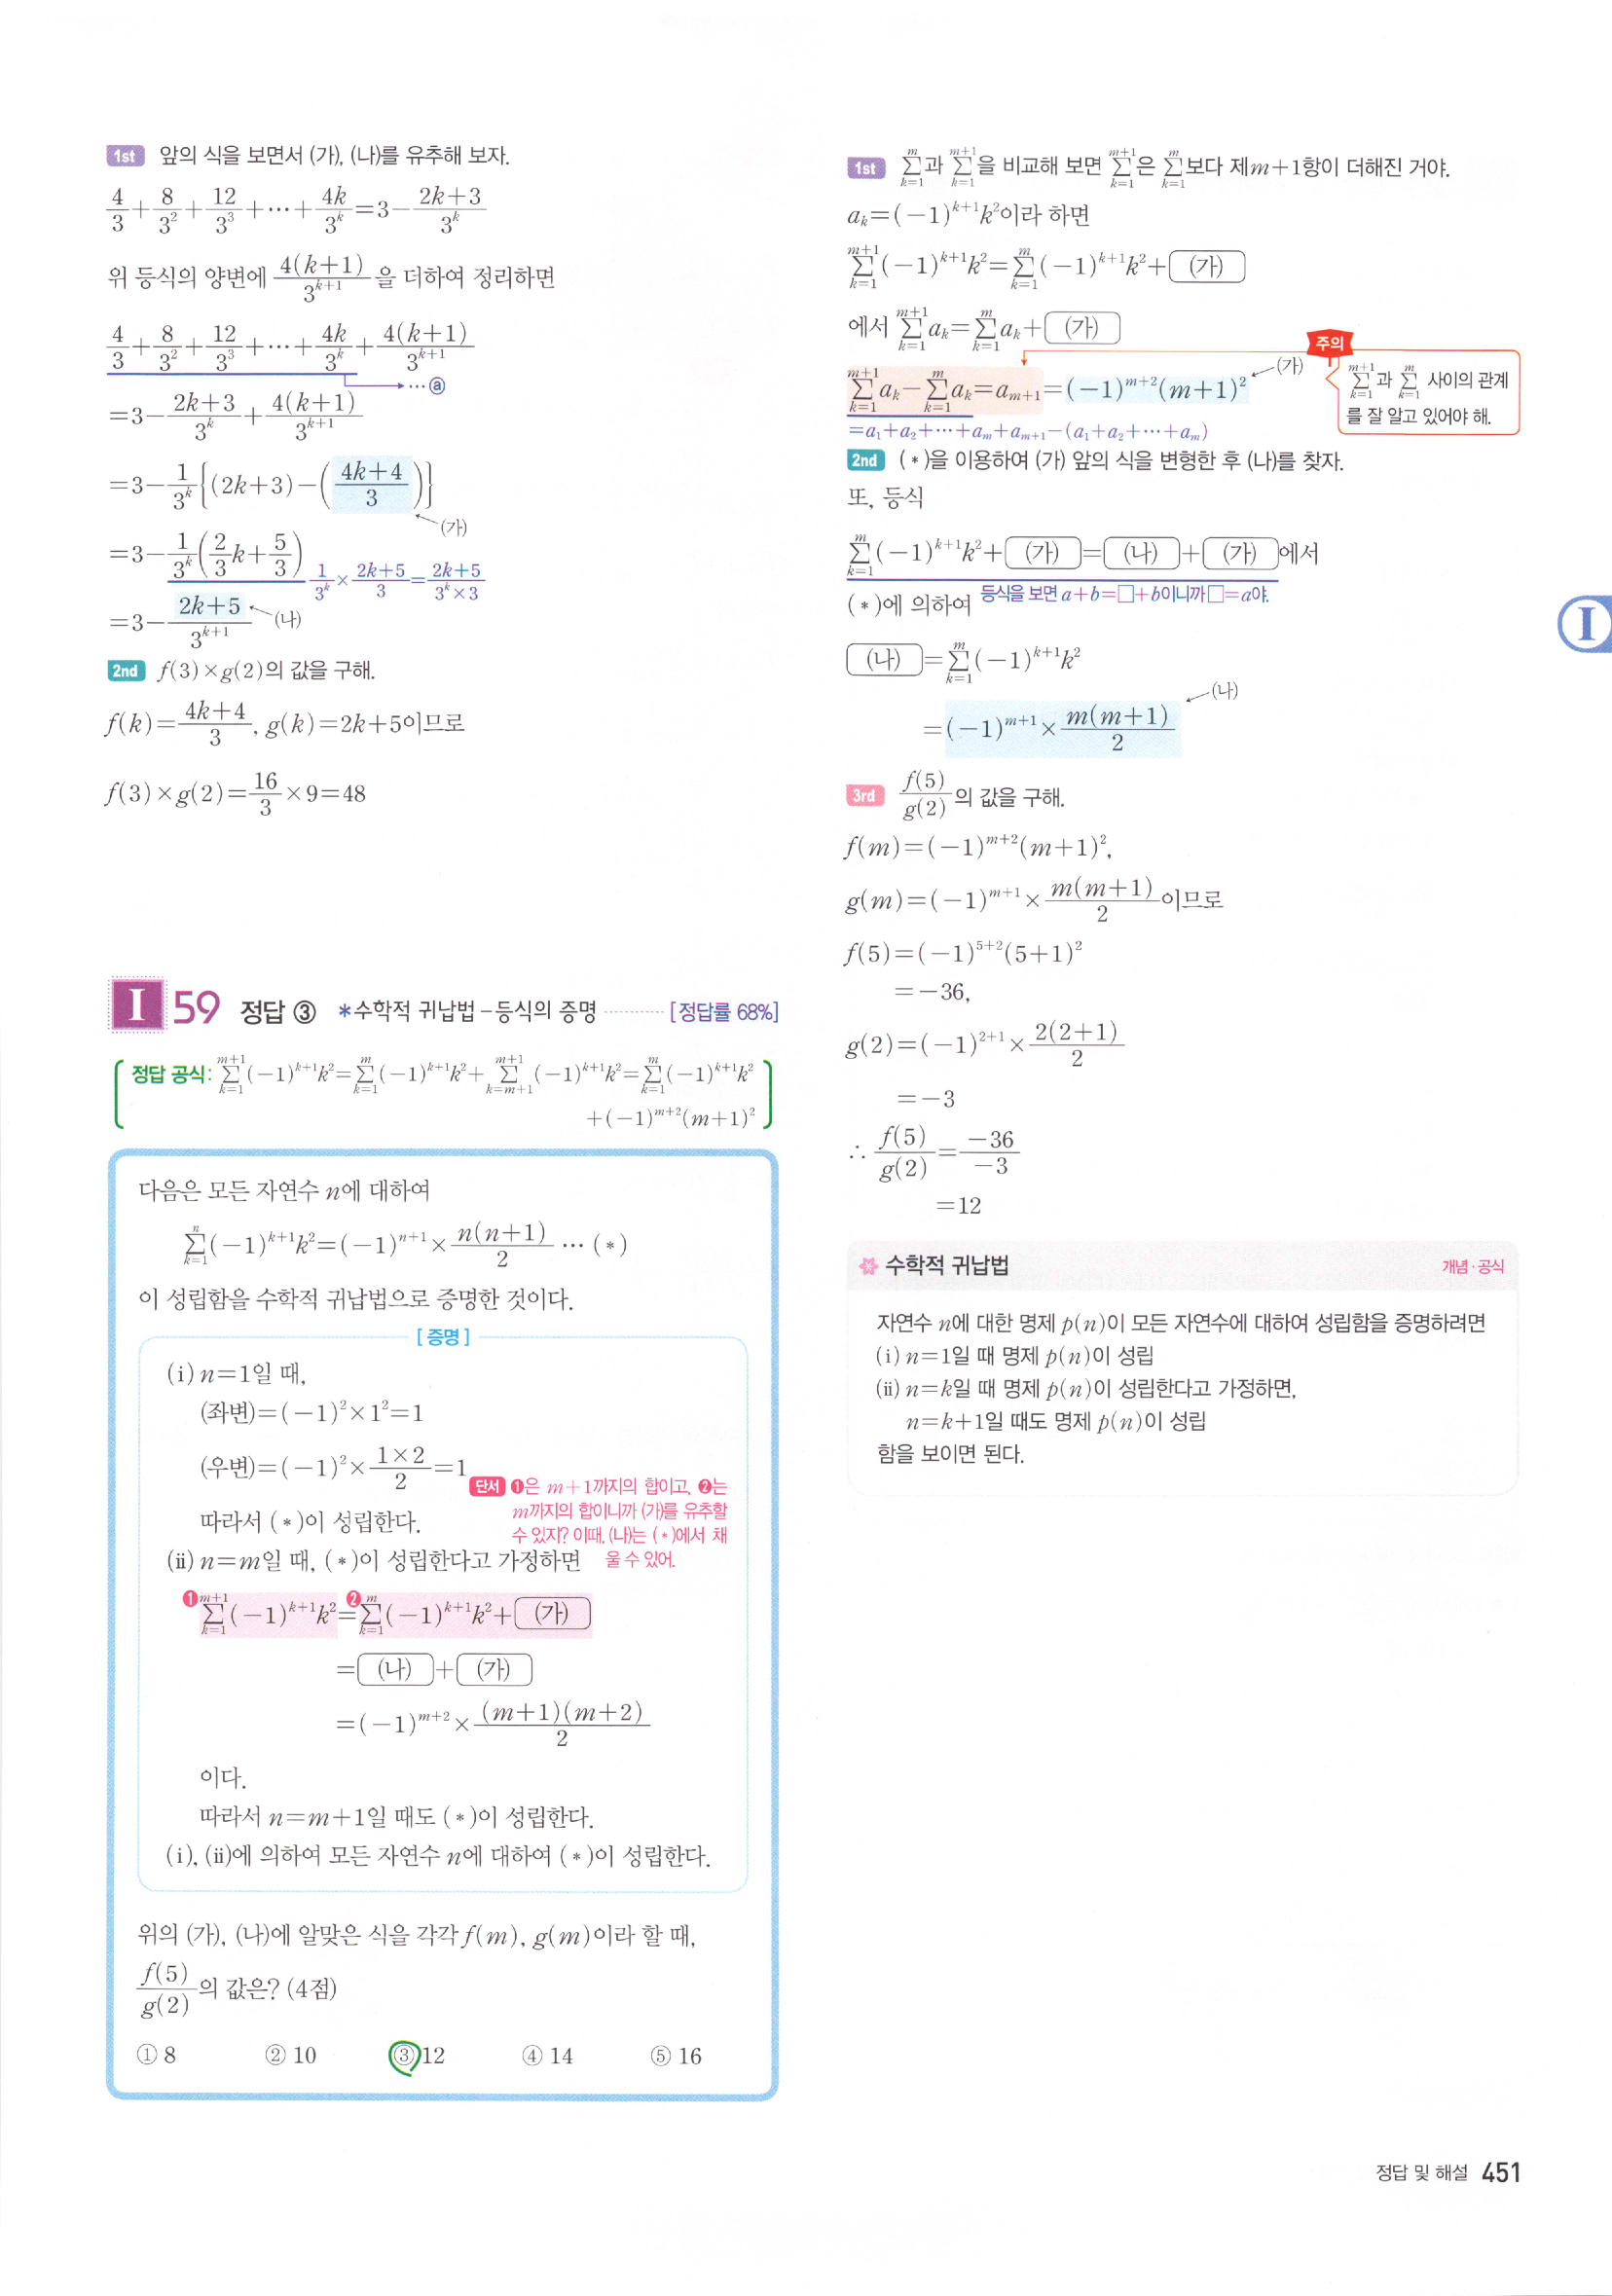 1st 앞의 식을 보면서 (가), (나)를 유추해 보자.
4/3+8/3²+12/3³+⋯+4k/3ᵏ=3−(2k+3)/3ᵏ
위 등식의 양변에 4(k+1)/3ᵏ⁺¹을 더하여 정리하면
4/3+8/3²+12/3³+⋯+4k/3ᵏ+4(k+1)/3ᵏ⁺¹
⋯ⓐ
=3−(2k+3)/3ᵏ+4(k+1)/3ᵏ⁺¹
=3−1/3ᵏ{(2k+3)−((4k+4)/3)}
(가)
=3−1/3ᵏ(2/3k+5/3) 1/3ᵏ×(2k+5)/3=(2k+5)/(3ᵏ×3)
=3−(2k+5)/3ᵏ⁺¹ (나)
2nd f(3)×g(2)의 값을 구해.
f(k)=(4k+4)/3, g(k)=2k+5이므로
f(3)×g(2)=16/3×9=48
I 59 정답 ③ *수학적 귀납법−등식의 증명 [정답률 68%]
정답 공식: ∑_{k=1}^{m+1}(−1)ᵏ⁺¹k²=∑_{k=1}^{m}(−1)ᵏ⁺¹k²+∑_{k=m+1}^{m+1}(−1)ᵏ⁺¹k²=∑_{k=1}^{m}(−1)ᵏ⁺¹k²
+(−1)ᵐ⁺²(m+1)²
다음은 모든 자연수 n에 대하여
∑_{k=1}^{n}(−1)ᵏ⁺¹k²=(−1)ⁿ⁺¹×n(n+1)/2 ⋯ (*)
이 성립함을 수학적 귀납법으로 증명한 것이다.
[증명]
(i) n=1일 때,
(좌변)=(−1)²×1²=1
(우변)=(−1)²×(1×2)/2=1
단서 ❶은 m+1까지의 합이고, ❷는
m까지의 합이니까 (가)를 유추할
수 있지? 이때, (나)는 (*)에서 채
울 수 있어.
따라서 (*)이 성립한다.
(ii) n=m일 때, (*)이 성립한다고 가정하면
❶∑_{k=1}^{m+1}(−1)ᵏ⁺¹k²=❷∑_{k=1}^{m}(−1)ᵏ⁺¹k²+(가)
=(나)+(가)
=(−1)ᵐ⁺²×(m+1)(m+2)/2
이다.
따라서 n=m+1일 때도 (*)이 성립한다.
(i), (ii)에 의하여 모든 자연수 n에 대하여 (*)이 성립한다.
위의 (가), (나)에 알맞은 식을 각각 f(m), g(m)이라 할 때,
f(5)/g(2)의 값은? (4점)
① 8 ② 10 ③ 12 ④ 14 ⑤ 16
1st ∑_{k=1}^{m}과 ∑_{k=1}^{m+1}을 비교해 보면 ∑_{k=1}^{m+1}은 ∑_{k=1}^{m}보다 제m+1항이 더해진 거야.
aₖ=(−1)ᵏ⁺¹k²이라 하면
∑_{k=1}^{m+1}(−1)ᵏ⁺¹k²=∑_{k=1}^{m}(−1)ᵏ⁺¹k²+(가)
에서 ∑_{k=1}^{m+1}aₖ=∑_{k=1}^{m}aₖ+(가)
∑_{k=1}^{m+1}aₖ−∑_{k=1}^{m}aₖ=aₘ₊₁=(−1)ᵐ⁺²(m+1)² (가)
=a₁+a₂+⋯+aₘ+aₘ₊₁−(a₁+a₂+⋯+aₘ)
주의
∑_{k=1}^{m+1}과 ∑_{k=1}^{m} 사이의 관계
를 잘 알고 있어야 해.
2nd (*)을 이용하여 (가) 앞의 식을 변형한 후 (나)를 찾자.
또, 등식
∑_{k=1}^{m}(−1)ᵏ⁺¹k²+(가)=(나)+(가)에서
(*)에 의하여 등식을 보면 a+b=□+b이니까 □=a야.
(나)=∑_{k=1}^{m}(−1)ᵏ⁺¹k²
=(−1)ᵐ⁺¹×m(m+1)/2 (나)
3rd f(5)/g(2)의 값을 구해.
f(m)=(−1)ᵐ⁺²(m+1)²,
g(m)=(−1)ᵐ⁺¹×m(m+1)/2이므로
f(5)=(−1)⁵⁺²(5+1)²
=−36,
g(2)=(−1)²⁺¹×2(2+1)/2
=−3
∴ f(5)/g(2)=−36/−3
=12
수학적 귀납법 개념·공식
자연수 n에 대한 명제 p(n)이 모든 자연수에 대하여 성립함을 증명하려면
(i) n=1일 때 명제 p(n)이 성립
(ii) n=k일 때 명제 p(n)이 성립한다고 가정하면,
n=k+1일 때도 명제 p(n)이 성립
함을 보이면 된다.
I
정답 및 해설 451